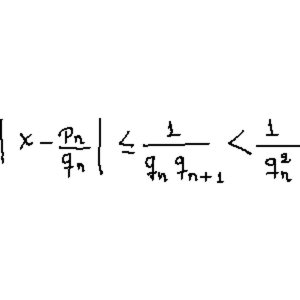 | x - p_n/q_n | ≤ 1/(q_n q_{n+1}) < 1/q_n^2